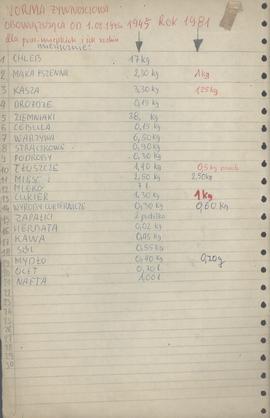 NORMA ŻYWNOŚCIOWA
OBOWIĄZUJĄCA OD 1.08.1945 1945 ROK 1981
dla prac. miejskich i ich rodzin
miesięcznie:
1 CHLEB 17 kg
2 MĄKA PSZENNA 2,30 kg 1 kg
3 KASZA 3,30 kg 1,25 kg
4 DROŻDŻE 0,15 kg
5 ZIEMNIAKI 38, kg
6 CEBULA 0,15 kg
7 WARZYWA 6,50 kg
8 STRĄCZKOWE 0,90 kg
9 PODROBY 0,30 kg
10 TŁUSZCZE 1,40 kg 0,5 kg
11 MIĘSO 2,60 kg 2,50 kg
12 MLEKO 7 l.
13 CUKIER 1 kg
14 WYROBY CUKIERNICZE 0,30 kg 0,60 kg
15 ZAPAŁKI 2 pudełka
16 HERBATA 0,02 kg
17 KAWA 0,45 kg
18 SÓL 0,55 kg
19 MYDŁO 0,40 kg 0,20 g
20 OCET 0,20 l
21 NAFTA 1,00 l